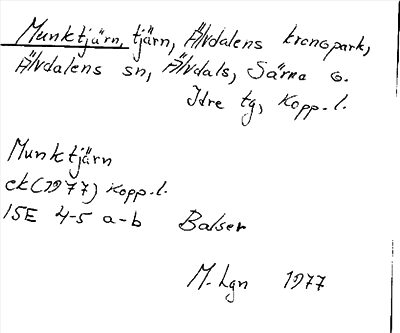 Munktjärn, tjärn, Älvdalens kronopark,
Älvdalens sn, Älvdals, Särna o.
Idre tg, Kopp.l.
Munktjärn
ek(1977) Kopp.l.
15E 4-5 a-b Balser
M. Lgn 1977